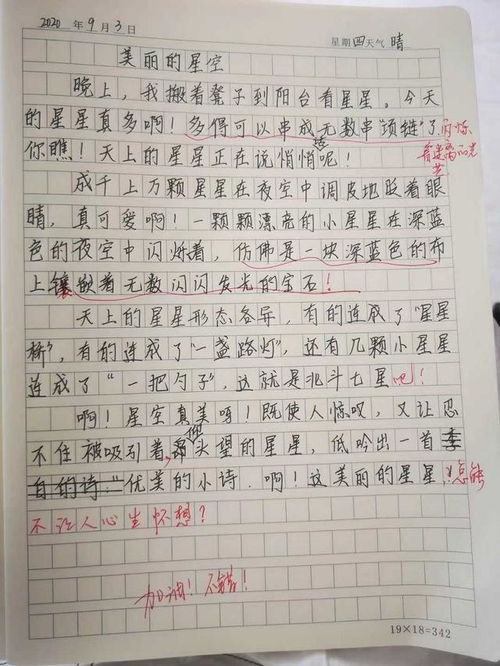 2020 年 9 月 3 日 星期 四 天气 晴
美丽的星空
晚上，我搬着凳子到阳台看星星。今天
的星星真多啊！多得可以串成无数串项链了
你瞧！天上的星星正在说悄悄话呢！
成千上万颗星星在夜空中调皮地眨着眼
睛，真可爱啊！一颗颗漂亮的小星星在深蓝
色的夜空中闪烁着，仿佛是一块深蓝色的布
上镶嵌着无数闪闪发光的宝石！
天上的星星形态各异，有的连成了“星星
桥”，有的连成了“一盏路灯”，还有几颗小星星
连成了“一把勺子”，这就是北斗七星吧！
啊！星空真美呀！既使人惊叹，又让忍
不住被吸引着，仰头望的星星，低吟出一首李
白的诗：“优美的小诗．啊！这美丽的星星，怎能
不让人心生怀想？
加油！不错！
19×18=342